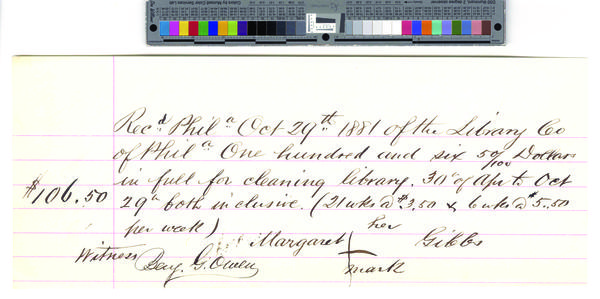 Rec.d Phil.a Oct 29th 1881 of the Library Co
of Phil.a One hundred and six 50/100 Dollars
in full for cleaning library. 30" of Apr. to Oct
$106.50
29" both inclusive. (21 wks @ $3.50 & 6 wks @ $5.50
per week)
her
Margaret Gibbs
mark
Witness
Benj. G. Owen